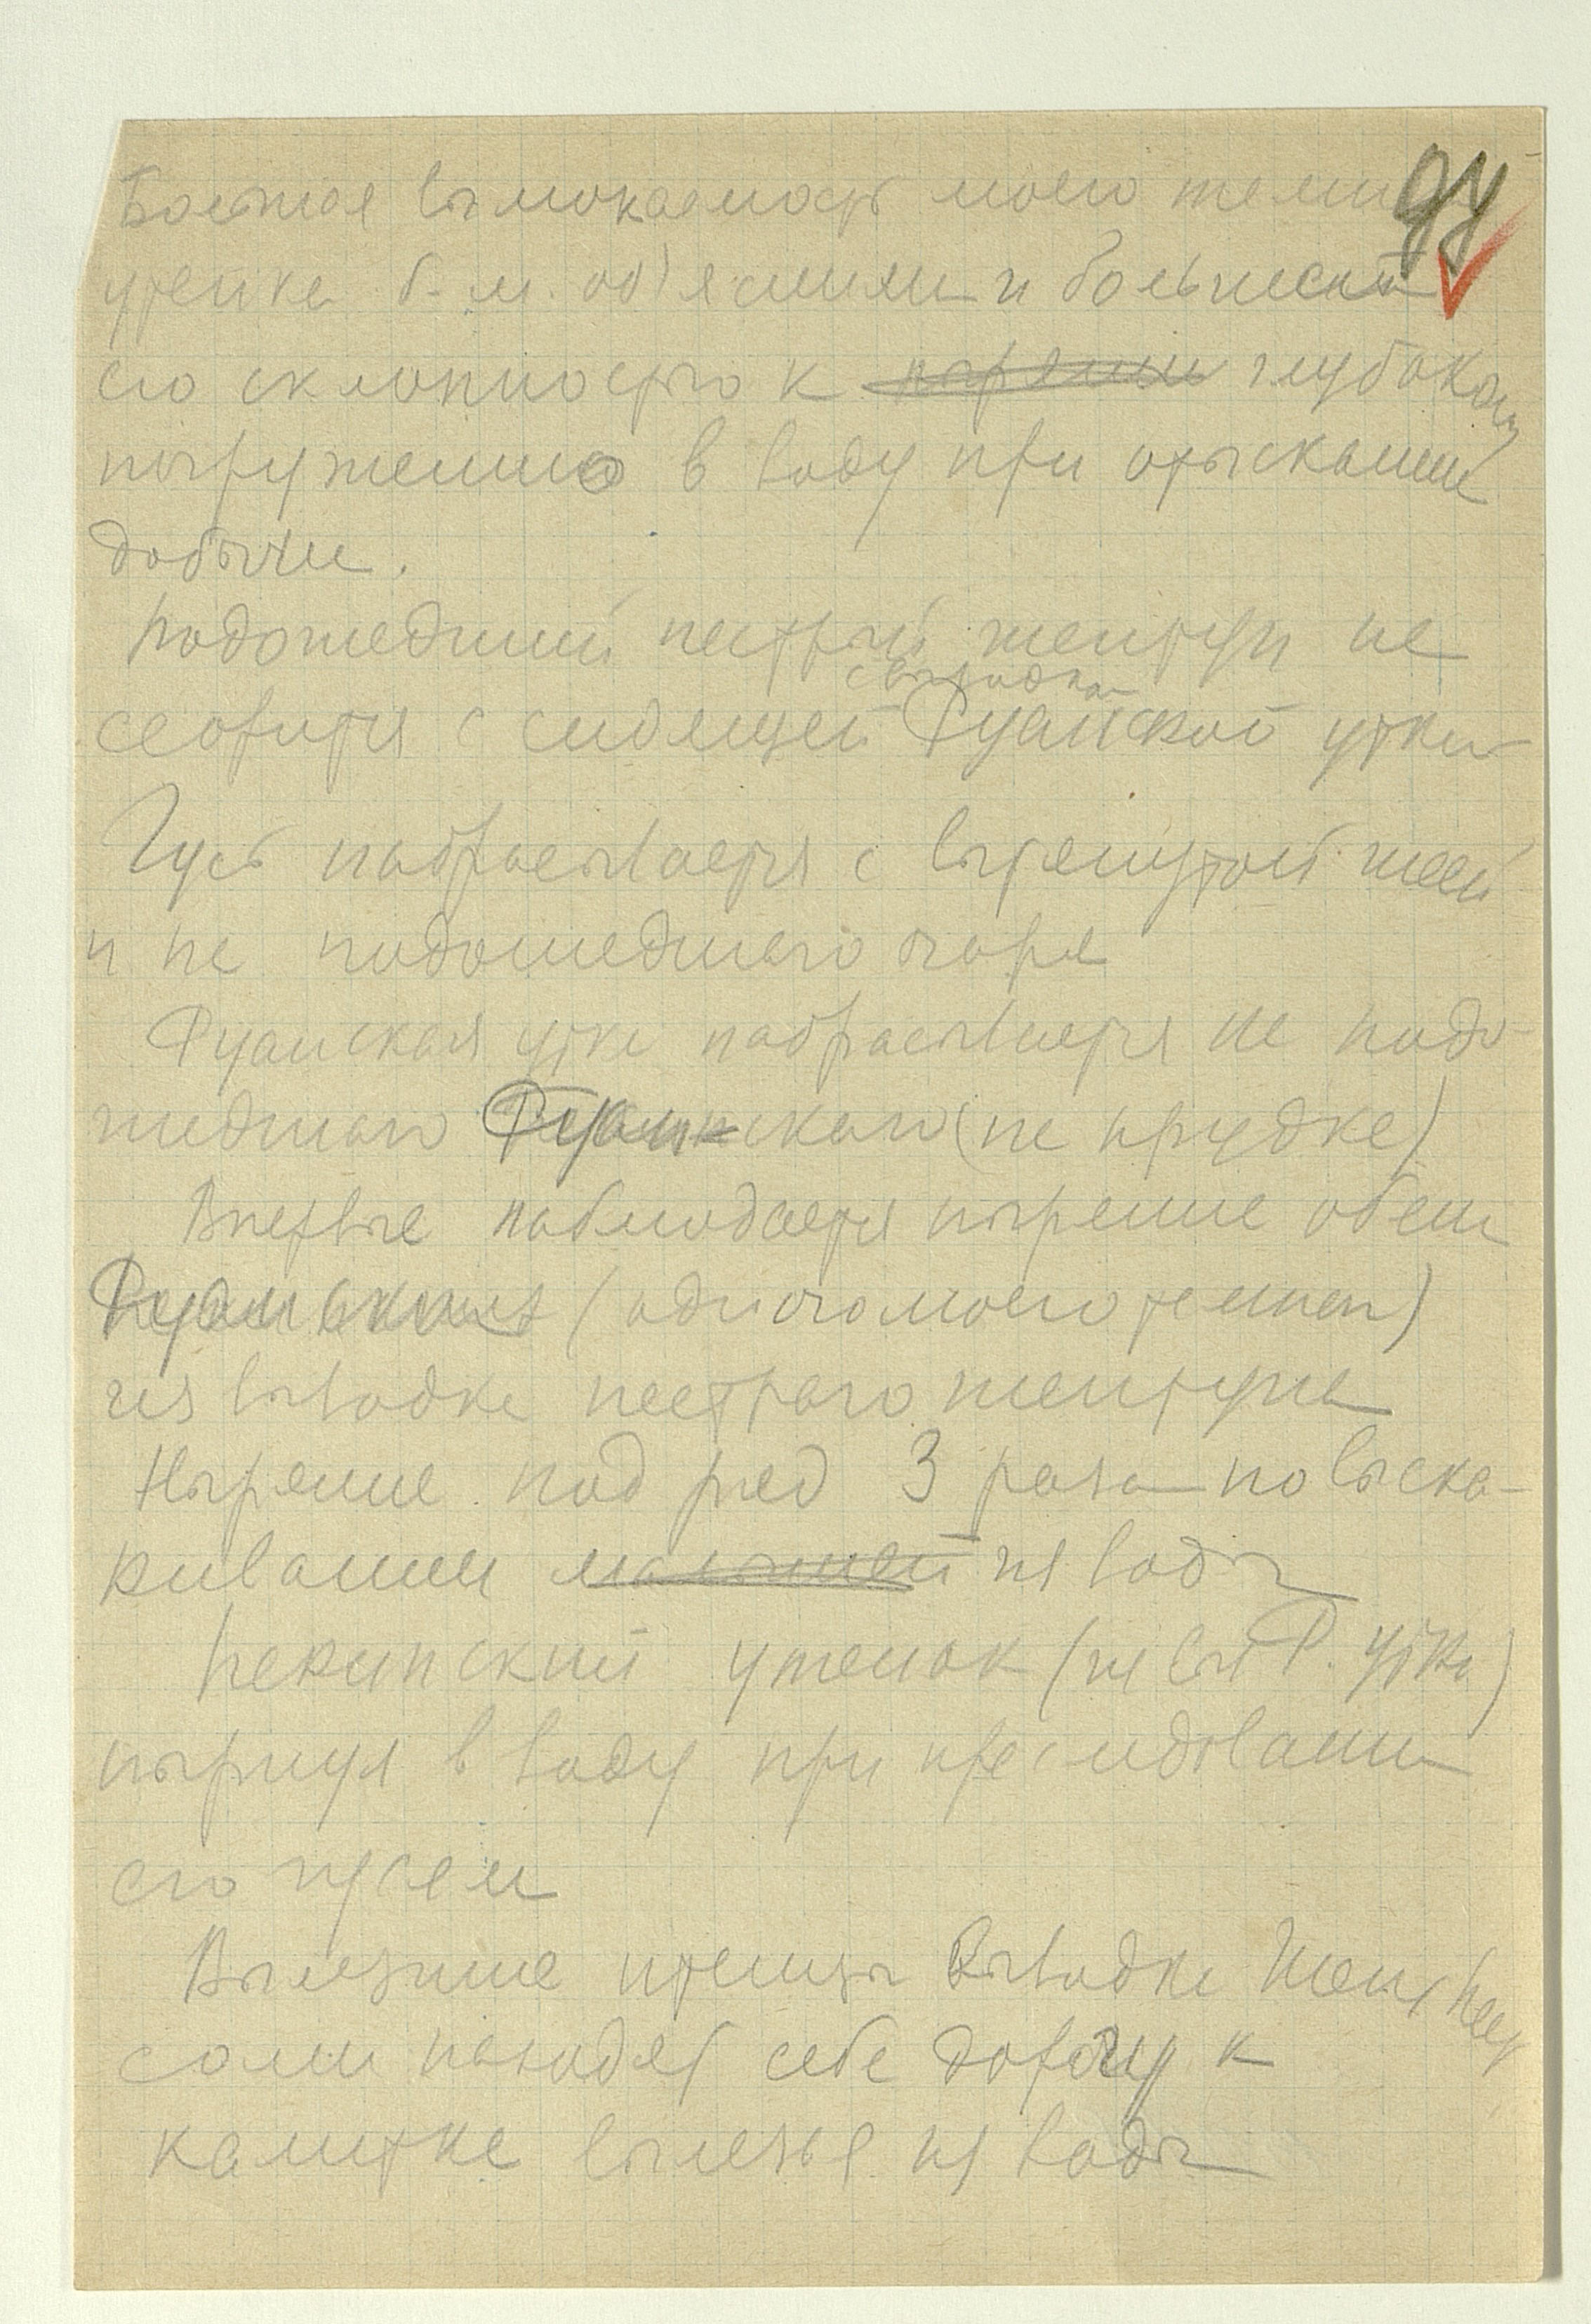 94
Большая вымокаемость моего темн
утенка б. м. об'яснима и большей
его склонностью к нырянию глубоком
погружению в воду при отыскании
добычи.
Подошедший пестрый шептун не
ссорится с сидящей Руанской утки
с выводком
Гусь набрасывается с вытянутой шеей
и на подошедшего
Руанская утка набрасывается на подо-
шедшаго Руанскаго (на прудке)
Впервые наблюдается ныряние обеих
Руанских (одного моего темнаго)
из выводка пестраго шептуна
Ныряние под ряд 3 раза по выска-
кивании из воды
Пекинский утенок (из выв Р. утки)
нырнул в воду при преследовании
его гусем
Вылезшие птенцы выводка Шепт
сами находят себе дорогу к
калитке вылезая из воды